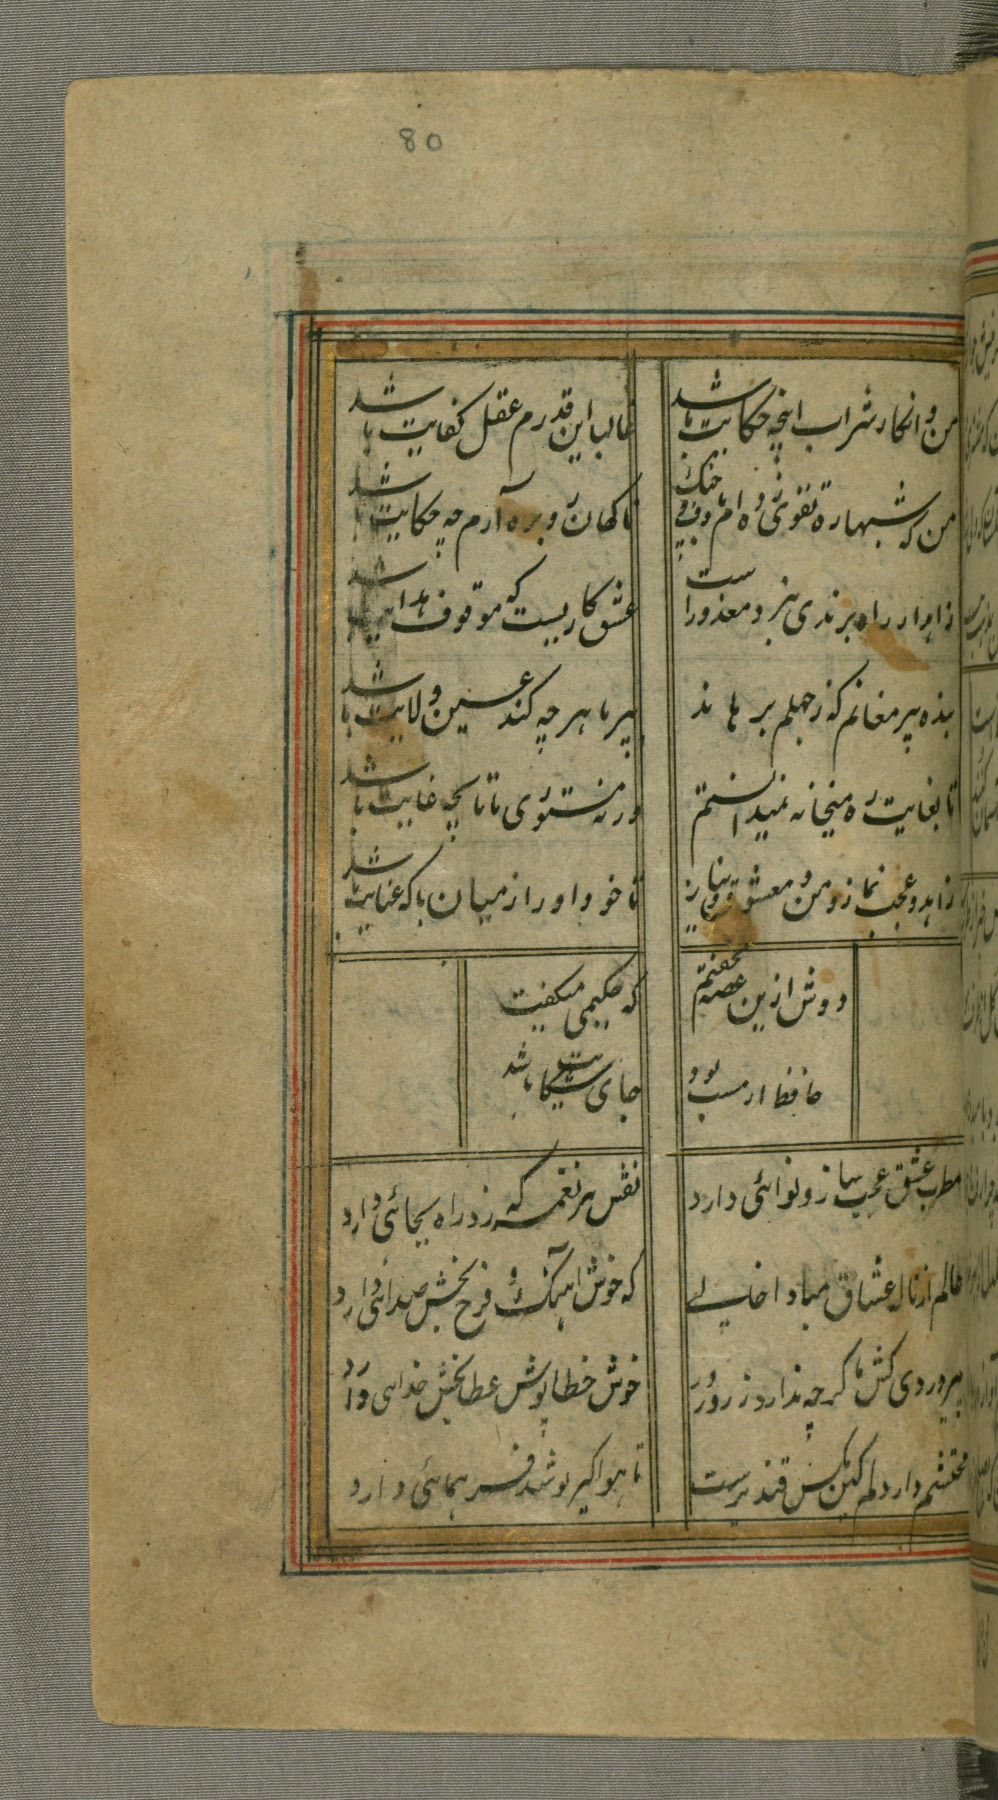 80
من و انکار شراب اینچه حکایت باشد
غالبا این قدرم عقل کفایت باشد
من که شبها ره تقوی زده ام با دف و چنک
ناکهان رو بره آرم چه حکایت باشد
زاهد ار راه برندی نبرد معذورست
عشق کاریست که موقوف هدایت باشد
بنده پیر مغانم که ز جهلم برهاند
پیر ما هر چه کند عین ولایت باشد
تا بغایت ره میخانه نمیدانستم
ورنه مستوری ما تا بچه غایت باشد
زاهد و عجب و نماز و من و معشوق و نیاز
تا خود او را ز میان با که عنایت باشد
دوش ازین غصه نخفتم
که حکیمی میکفت
حافظ ار مست بود
جای شکایت باشد
مطرب عشق عجب ساز و نوائی دارد
نقش هر نغمه که زد راه بجائی دارد
عالم از نال عشاق مبادا خالی
که خوش اهنک و فرح بخش صدائی دارد
پیر دردی کش ما کر چه ندارد زر و زور
خوش خطاپوش عطا بخش خدائی دارد
محتشم دار دلم کین مکس قندپرست
تا هواکیر تو شد فر همائی دارد